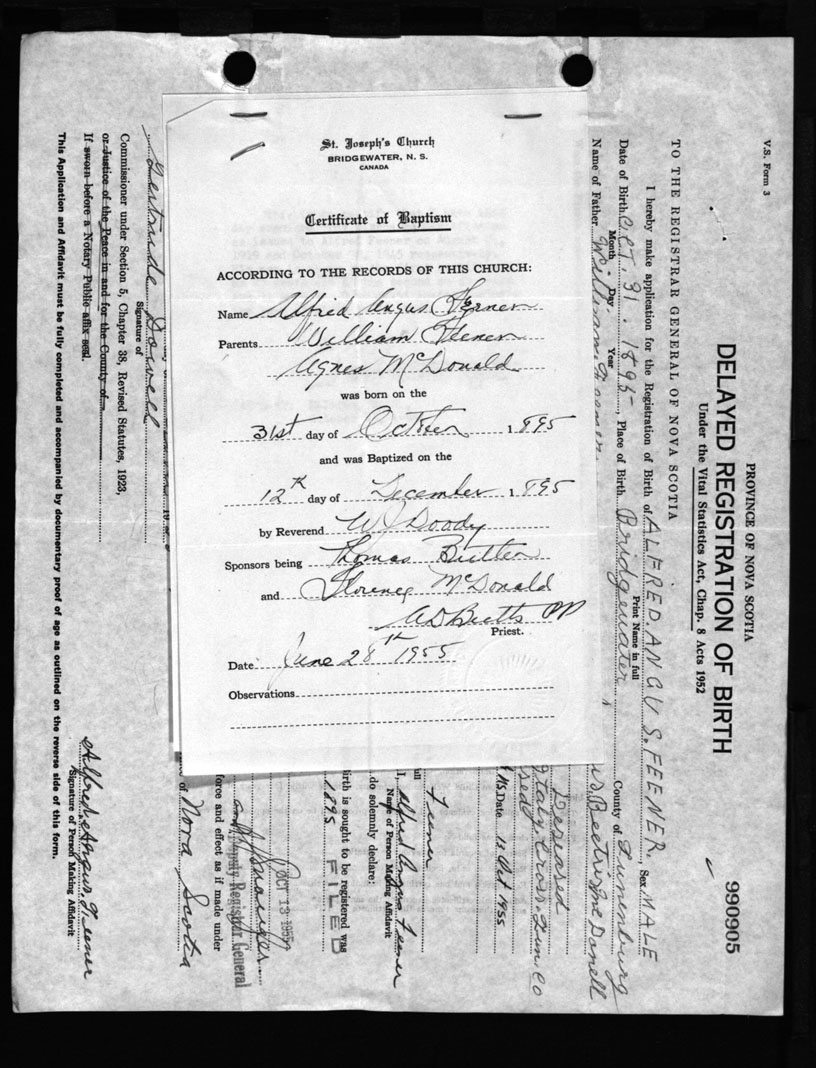 St. Joseph's Church
BRIDGEWATER, N. S.
CANADA
Certificate of Baptism
ACCORDING TO THE RECORDS OF THIS CHURCH:
Name Alfred Angus Feener
Parents William Feener
Agnes McDonald
was born on the
31st day of October 1895
and was Baptized on the
12th day of December 1895
by Reverend W J Doody
Sponsors being Thomas Butler
and Florence McDonald
Priest.
Date June 28th 1955
Observations
V.S. Form 3
PROVINCE OF NOVA SCOTIA
DELAYED REGISTRATION OF BIRTH
Under the Vital Statistics Act, Chap. 8 Acts 1952
990905
TO THE REGISTRAR GENERAL OF NOVA SCOTIA
I hereby make application for the Registration of Birth of ALFRED. ANGUS. FEENER. , Sex MALE
Print Name in full
Date of Birth OCT. 31 1895 , Place of Birth Bridgewater County of Lunenburg
Month Day Year
Name of Father William Feener
Deceased
Italy Cross. Lun. Co
NS Date 15 Oct 1955
Feener
full
I, Alfred Angus Feener
Name of Person Making Affidavit
do solemnly declare:
birth is sought to be registered was
1895 FILED
OCT 13 1955
Deputy Registrar General
force and effect as if made under
of Nova Scotia
Gertrude
Signature of
Commissioner under Section 5, Chapter 38, Revised Statutes, 1923,
or Justice of the Peace in and for the County of
If sworn before a Notary Public affix seal.
Alfred Angus Feener
Signature of Person Making Affidavit
This Application and Affidavit must be fully completed and accompanied by documentary proof of age as outlined on the reverse side of this form.